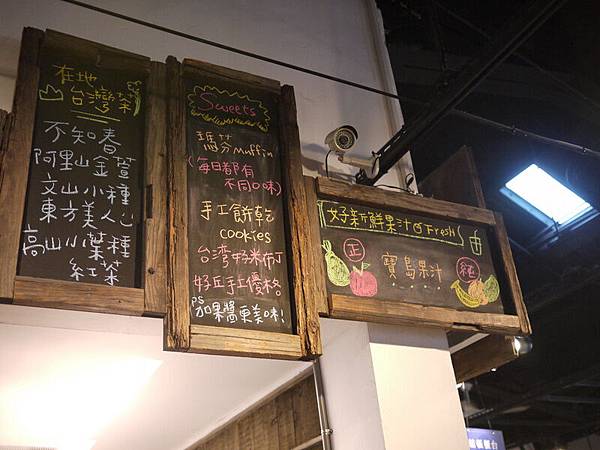 在地
台灣茶
不知春
阿里山金萱
文山小種
東方美人
高山小葉種
紅茶
Sweets
瑪芬Muffin
(每日都有
不同口味)
手工餅乾
cookies
台湾好米布丁
好丘手工優格
PS
加果醬更美味!
好新鮮果汁 Fresh
正 寶島果汁 純